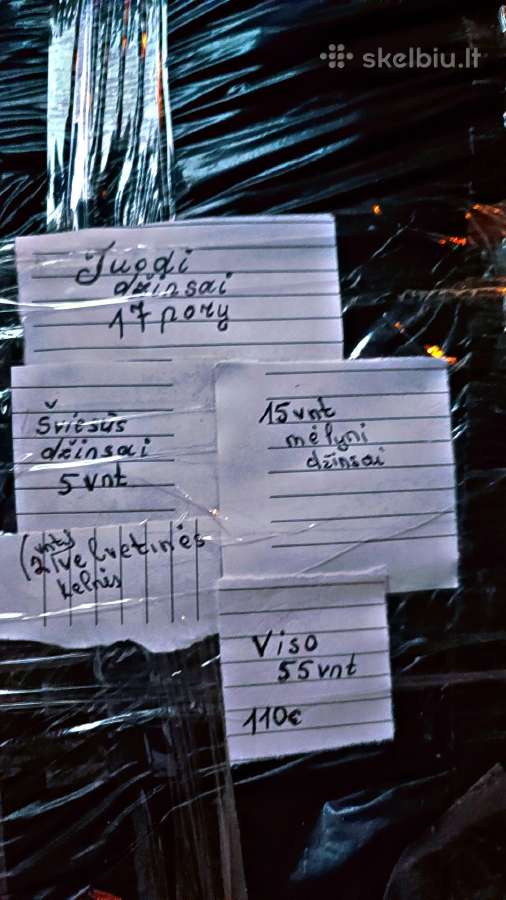 skelbiu.lt
Juodi
džinsai
17 porų
Šviesūs
džinsai
5 vnt
15 vnt
mėlyni
džinsai
(2 vnt) velvetinės
kelnės
Viso
55 vnt
110€